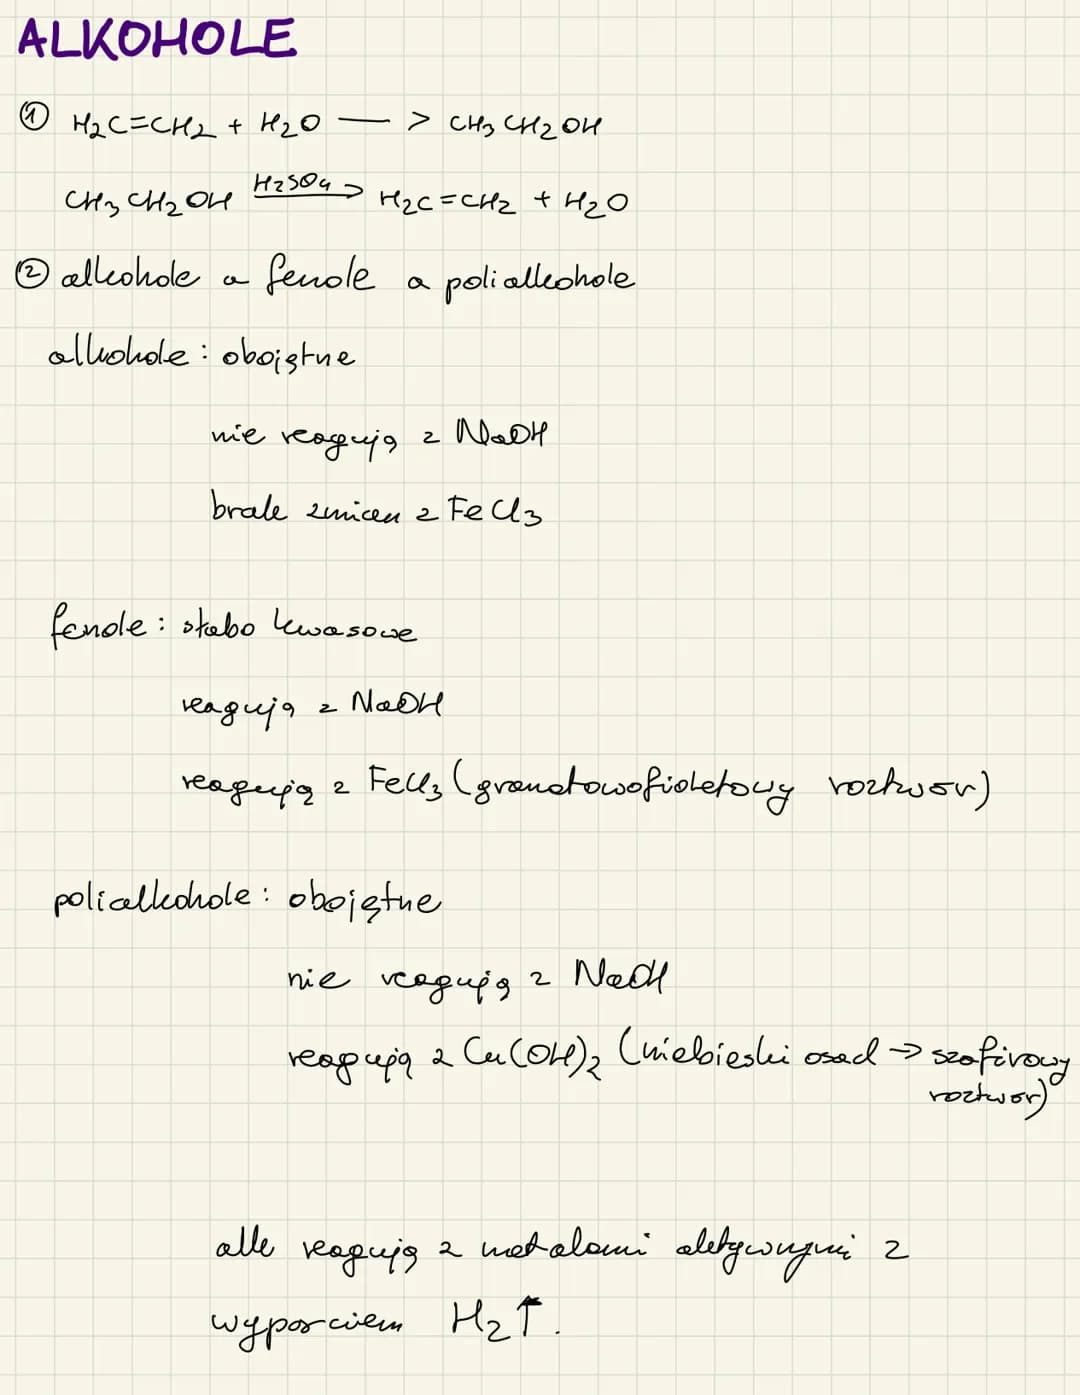 ALKOHOLE
① H2C=CH2 + H2O —> CH3CH2OH
CH3CH2OH H2SO4→ H2C=CH2 + H2O
② alkohole a fenole a polialkohole
alkohole: obojętne
nie reagują z NaOH
brak zmian z FeCl3
fenole: słabo kwasowe
reagują z NaOH
reagują z FeCl3 (granatowofioletowy roztwór)
polialkohole: obojętne
nie reagują z NaOH
reagują z Cu(OH)2 (niebieski osad → szafirowy
roztwór)
alk reagują z metalami aktywnymi z
wyparciem H2↑.